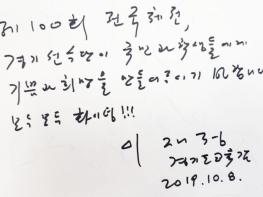 제 100회 전국체전,
경기 선수단이 국민과 학생들에게
기쁨과 희망을 만들어주시기 바랍니다
모두 모두 화이팅!!!
이
경기도교육감
2019.10.8.